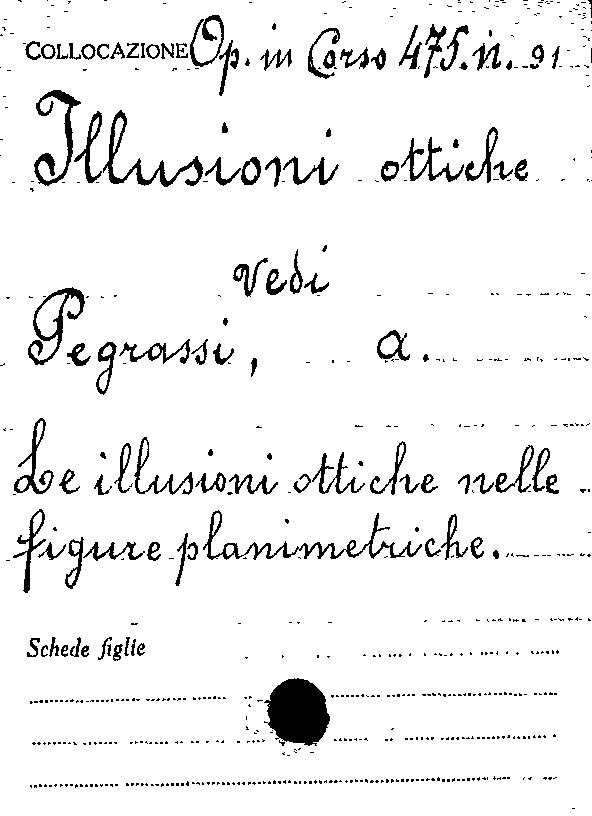 COLLOCAZIONE Op. in Corso 475. n. 91
Illusioni ottiche
vedi
Pegrassi, a.
Le illusioni ottiche nelle
figure planimetriche.
Schede figlie